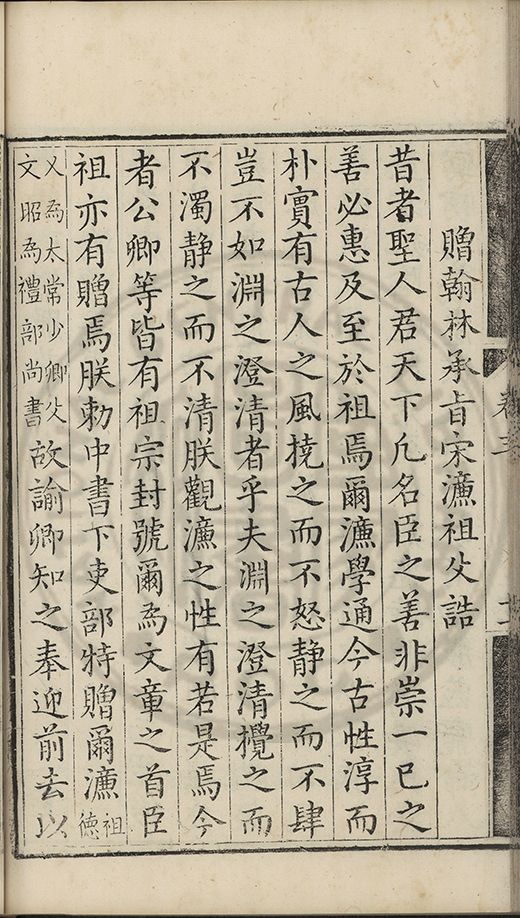 卷三
贈翰林承旨宋濂祖父誥
昔者聖人君天下凡名臣之善非崇一已之
善必惠及至於祖焉爾濂學通今古性淳而
朴實有古人之風撓之而不怒静之而不肆
豈不如淵之澄清者乎夫淵之澄清攪之而
不濁静之而不清朕觀濂之性有若是焉今
者公卿等皆有祖宗封號爾為文章之首臣
祖亦有贈焉朕勅中書下吏部特贈爾濂祖德
乂為太常少卿父文昭為禮部尚書故諭卿知之奉迎前去以